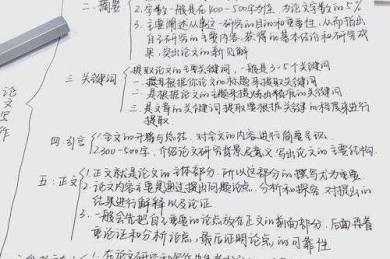 论文写作
二、摘要
2.字数一般在400-500字为佳,为论文字数的5%
3.主要阐述从事这一研究的目的和重要性,从而指出
自己研究的主要内容,获得的基本结论和研究成
果,突出论文的新见解
三 关键词
提取论文的主要关键词,一般是3-5个关键词
一是根据你论文的标题来提取关键词
二是根据论文的主题来提炼出精准的关键词
三是文章的关键词提取要根据关键的程度来进行
提取
四.引言
1.全文的开篇与总括,对全文的内容进行简要
2.300-500字,介绍论文研究背景及意义,写出论文的主要结构.
五:正文
1.正文既是论文的主体部分,所以这部分的撰写尤为重要
2.论文内容主要是通过提出问题论点,分析和探究,对提出的
结果进行解释以及论证
3.一般会先把自己重要的论点放在正文的前面部分,后面再着
重论证和分析论点,最后证明论点的可靠性